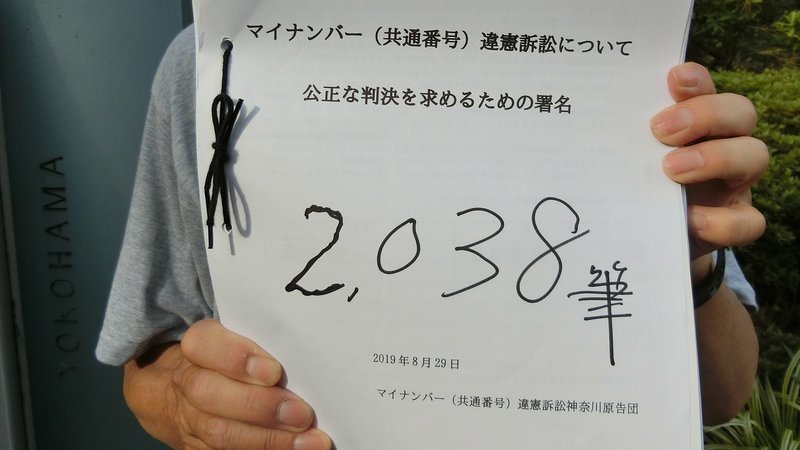 マイナンバー（共通番号）違憲訴訟について
公正な判決を求めるための署名
2,038筆
2019年8月29日
マイナンバー（共通番号）違憲訴訟神奈川原告団
YOKOHAMA